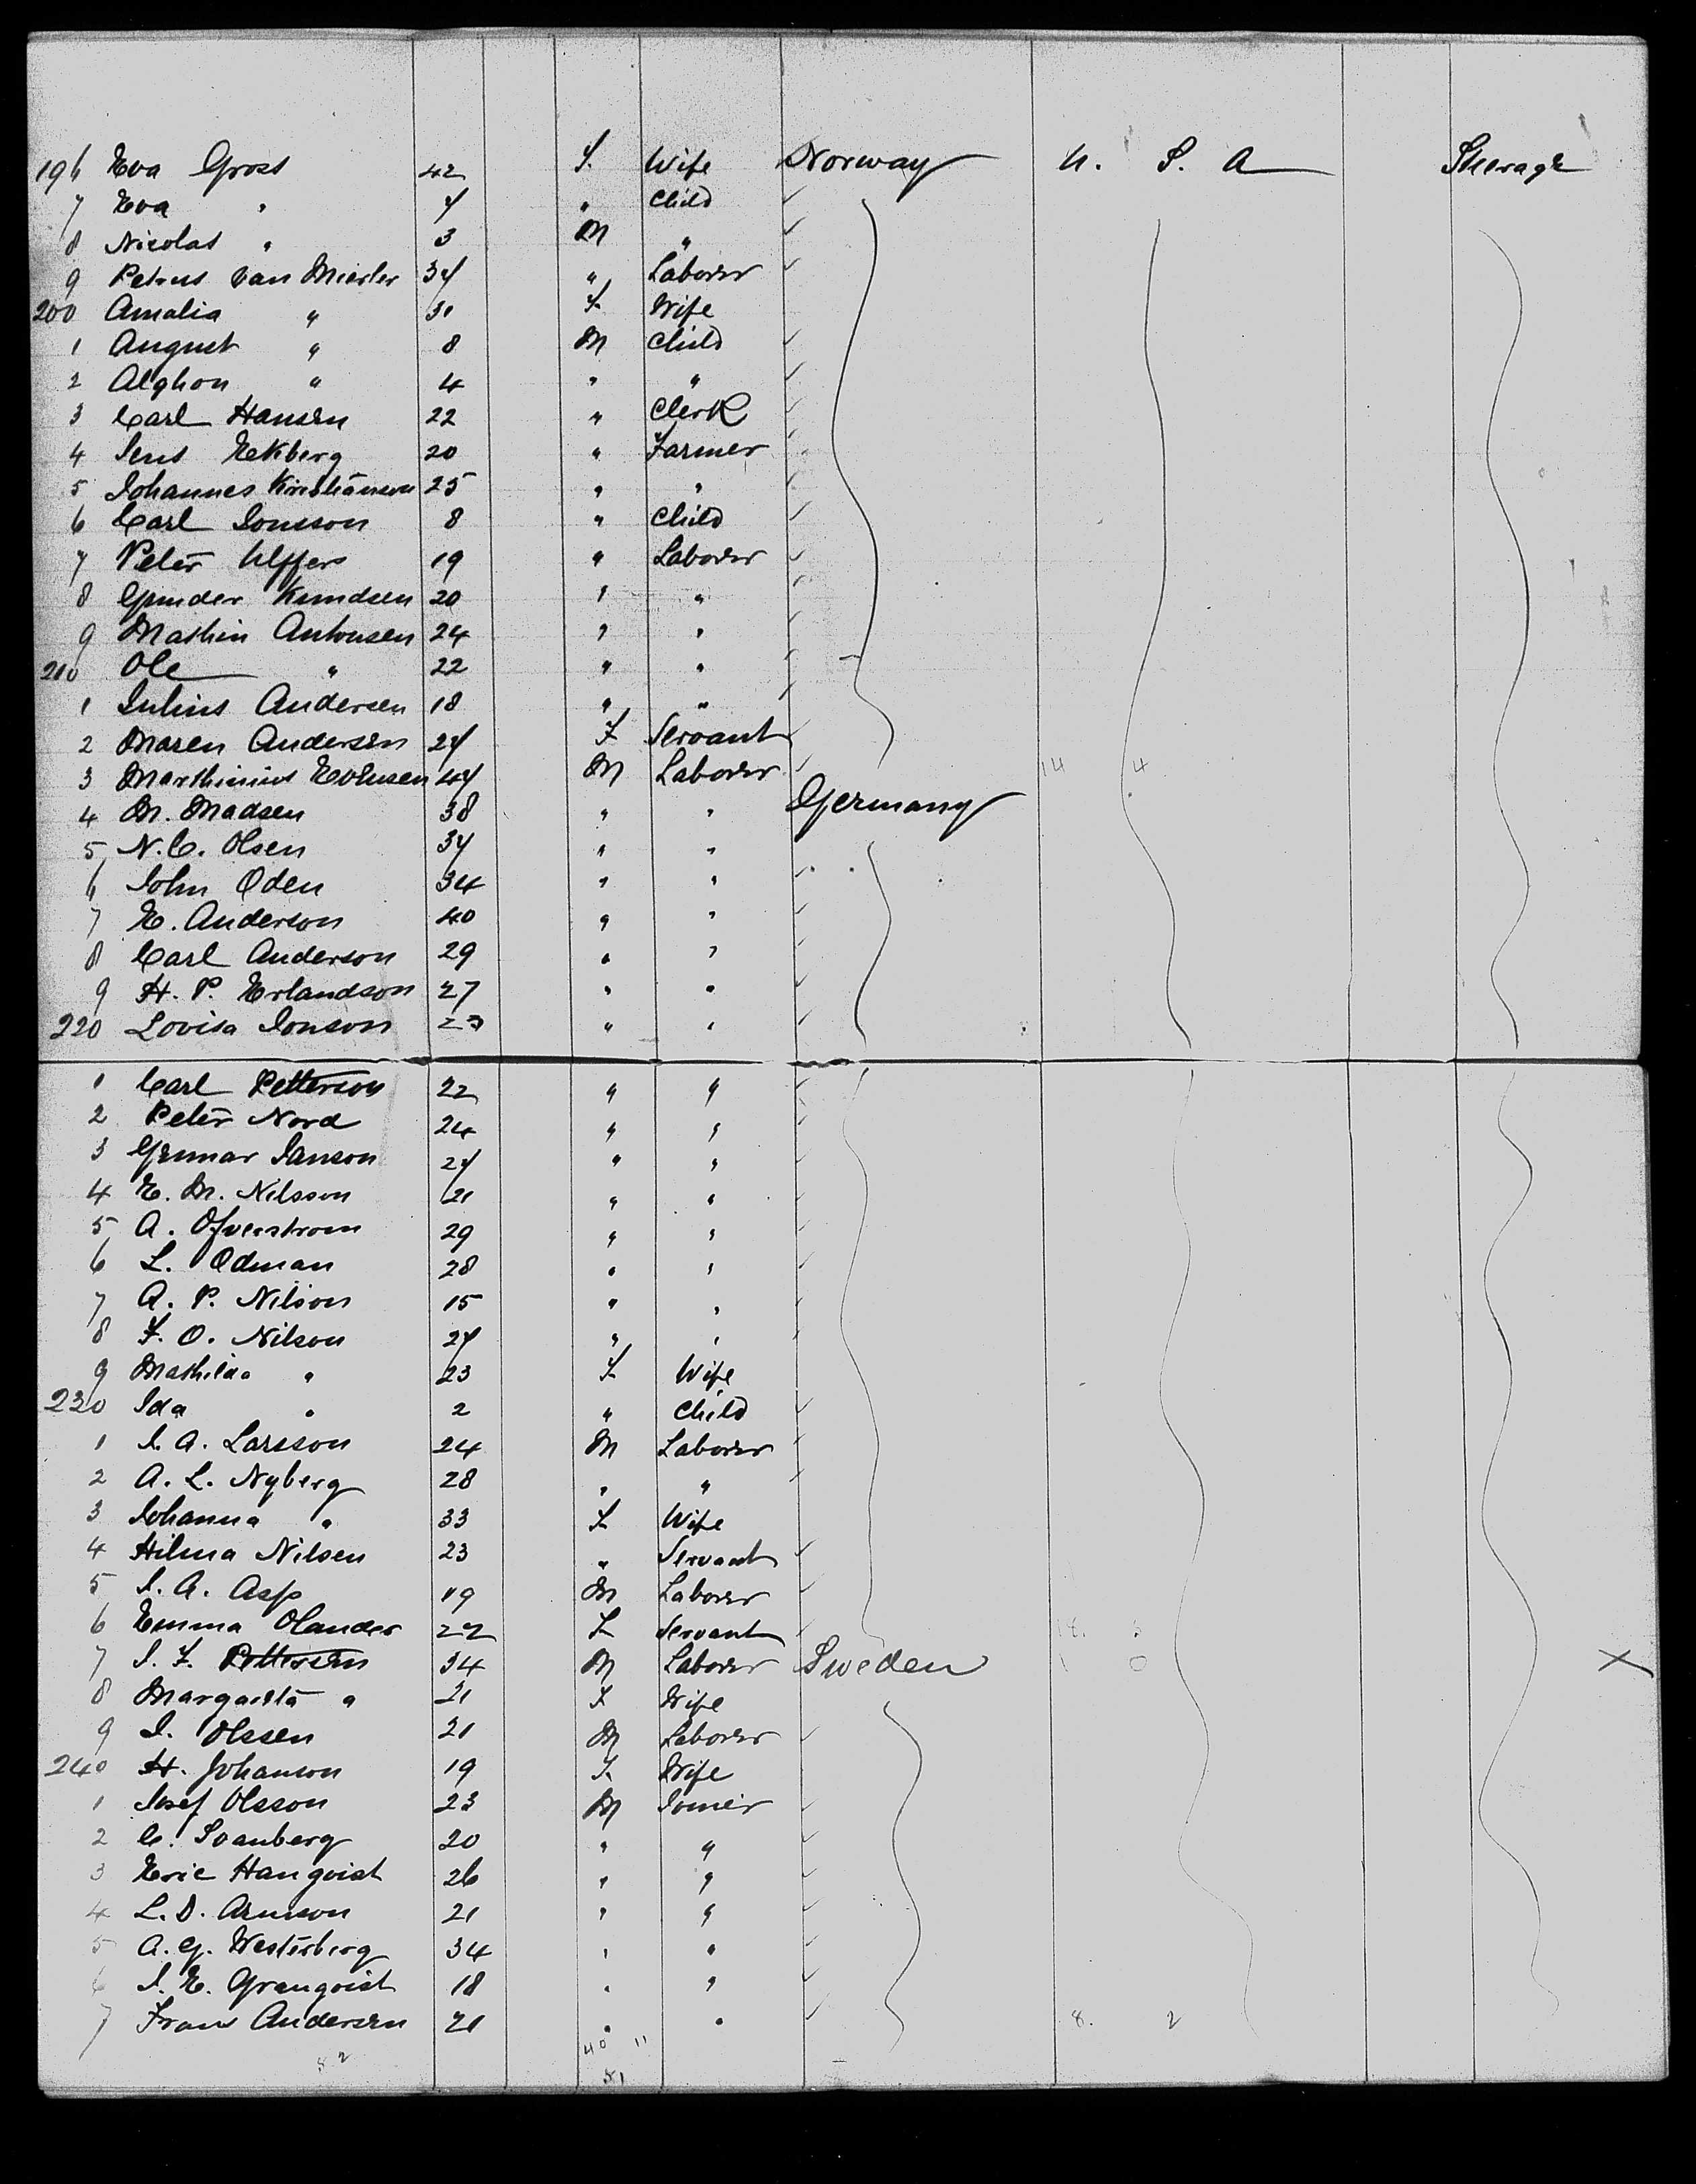 196 Eva Gross 42 F. Wife Norway U. S. A Steerage
7 Eva " 7 " Child
8 Nicolas " 3 M "
9 Petrus van Mierler 37 " Laborer
200 Amalia " 31 F Wife
1 August " 8 M Child
2 Alghon " 4 " "
3 Carl Hansen 22 " Clerk
4 Jens Eekberg 20 " Farmer
5 Johannes Kristianson 25 " "
6 Carl Jonsson 8 " Child
7 Peter Ulffers 19 " Laborer
8 Gunder Knudsen 20 " "
9 Mathin Antonsen 24 " "
210 Ole " 22 " "
1 Julius Andersen 18 " "
2 Maren Andersen 27 F Servant
3 Marthinius Evensen 47 M Laborer 14 4
4 M. Madsen 38 " " Germany
5 N. C. Olsen 37 " "
6 John Oden 34 " "
7 E. Anderson 40 " "
8 Carl Anderson 29 " "
9 H. P. Erlandson 27 " "
220 Lovisa Jonson " "
1 Carl Petterson 22 " "
2 Peter Nord 24 " "
3 Gunnar Janson 27 " "
4 E. M. Nilsson 21 " "
5 A. Ofverstrom 29 " "
6 L. Odman 28 " "
7 A. P. Nilson 15 " "
8 F. O. Nilson 27 " "
9 Mathilda " 23 F Wife
230 Ida " 2 " Child
1 J. A. Larsson 24 M Laborer
2 A. L. Nyberg 28 " "
3 Johanna " 33 F Wife
4 Hilma Nilsen 23 " Servant
5 J. A. Asp 19 M Laborer
6 Emma Olander 22 F Servant
7 J. F. Pettersen 34 M Laborer Sweden X
8 Margareta " 21 F Wife
9 J. Olssen 21 M Laborer
240 H. Johanson 19 F. Wife
1 Josef Olsson 23 M Joiner
2 C. Svanberg 20 " "
3 Eric Hanqvist 26 " "
4 L. D. Arnuson 21 " "
5 A. G. Westerberg 34 " "
6 J. E. Granqvist 18 " "
7 Frans Andersen 21 " " 8. 2
52 40 11
51